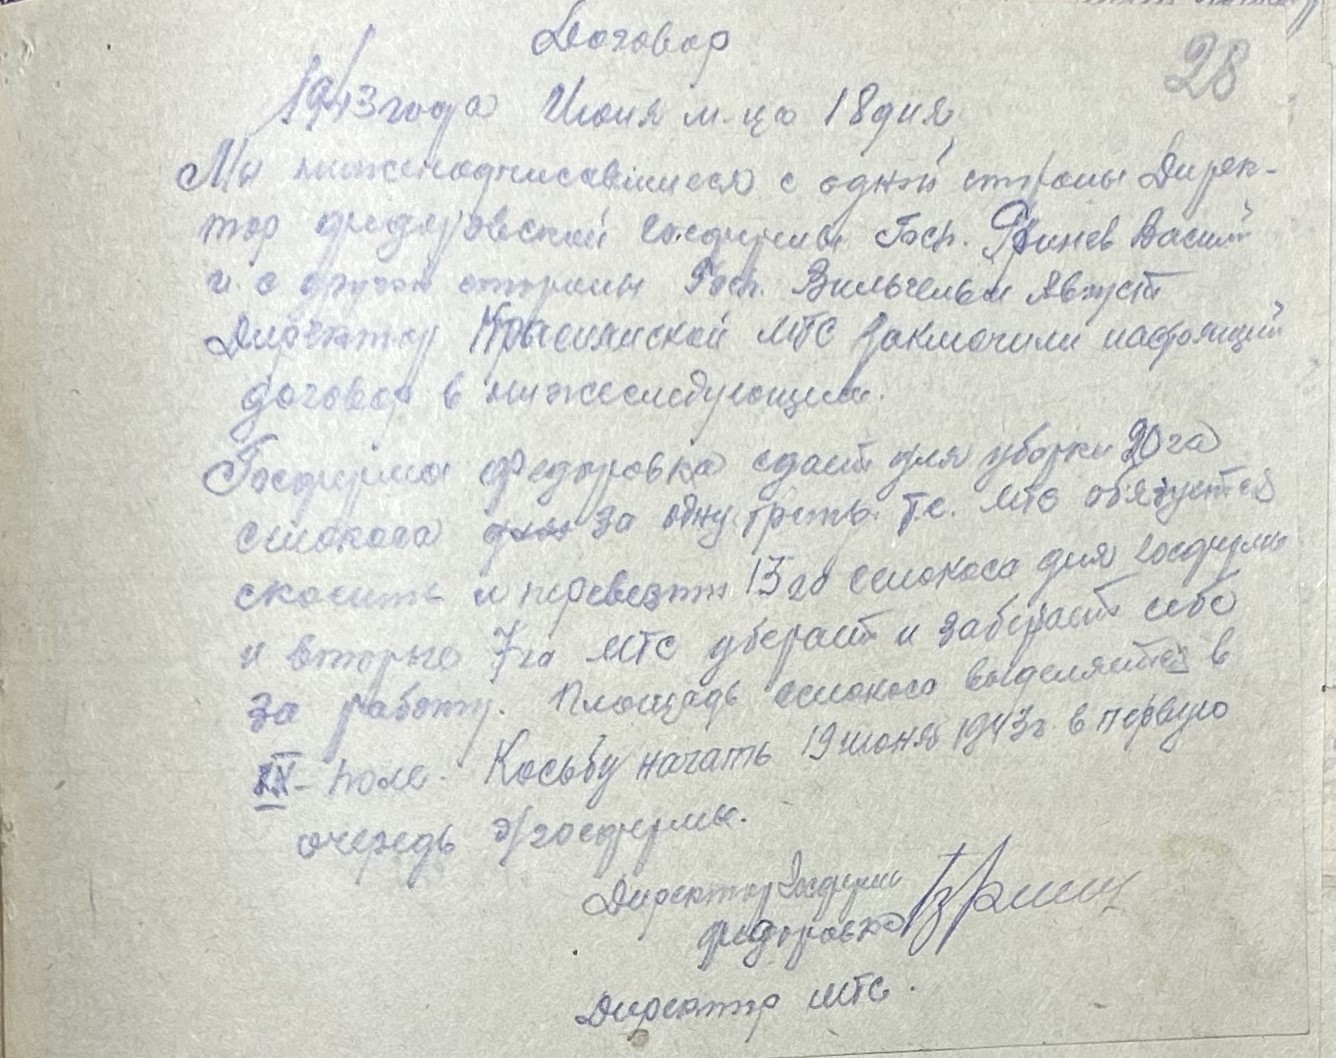 Договор
28
1943 года Июня м-ца 18 дня
Мы нижеподписавшиеся с одной стороны Дирек-
тор Федоровской Госфермы Госп. Василий
и с другой стороны Госп. Вильгельм Август
Директор МТС заключили настоящий
договор в нижеследующем.
Госферма Федоровка сдает для уборки 20 га
сенокоса за одну треть. т.е. МТС обязуется
скосить и перевезти 13 га сенокоса для Госфермы
и вторые 7 га МТС убирает и забирает себе
за работу. Площадь сенокоса выделяется в
IX - поле. Косьбу начать 19 июня 1943 г. в первую
очередь д/госфермы.
Директор Госфермы
Федоровка
Директор МТС.